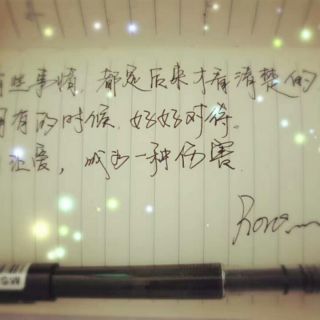 有些事情,都是后来才看清楚的
拥有的时候,好好对待。
让爱,成为一种伤害